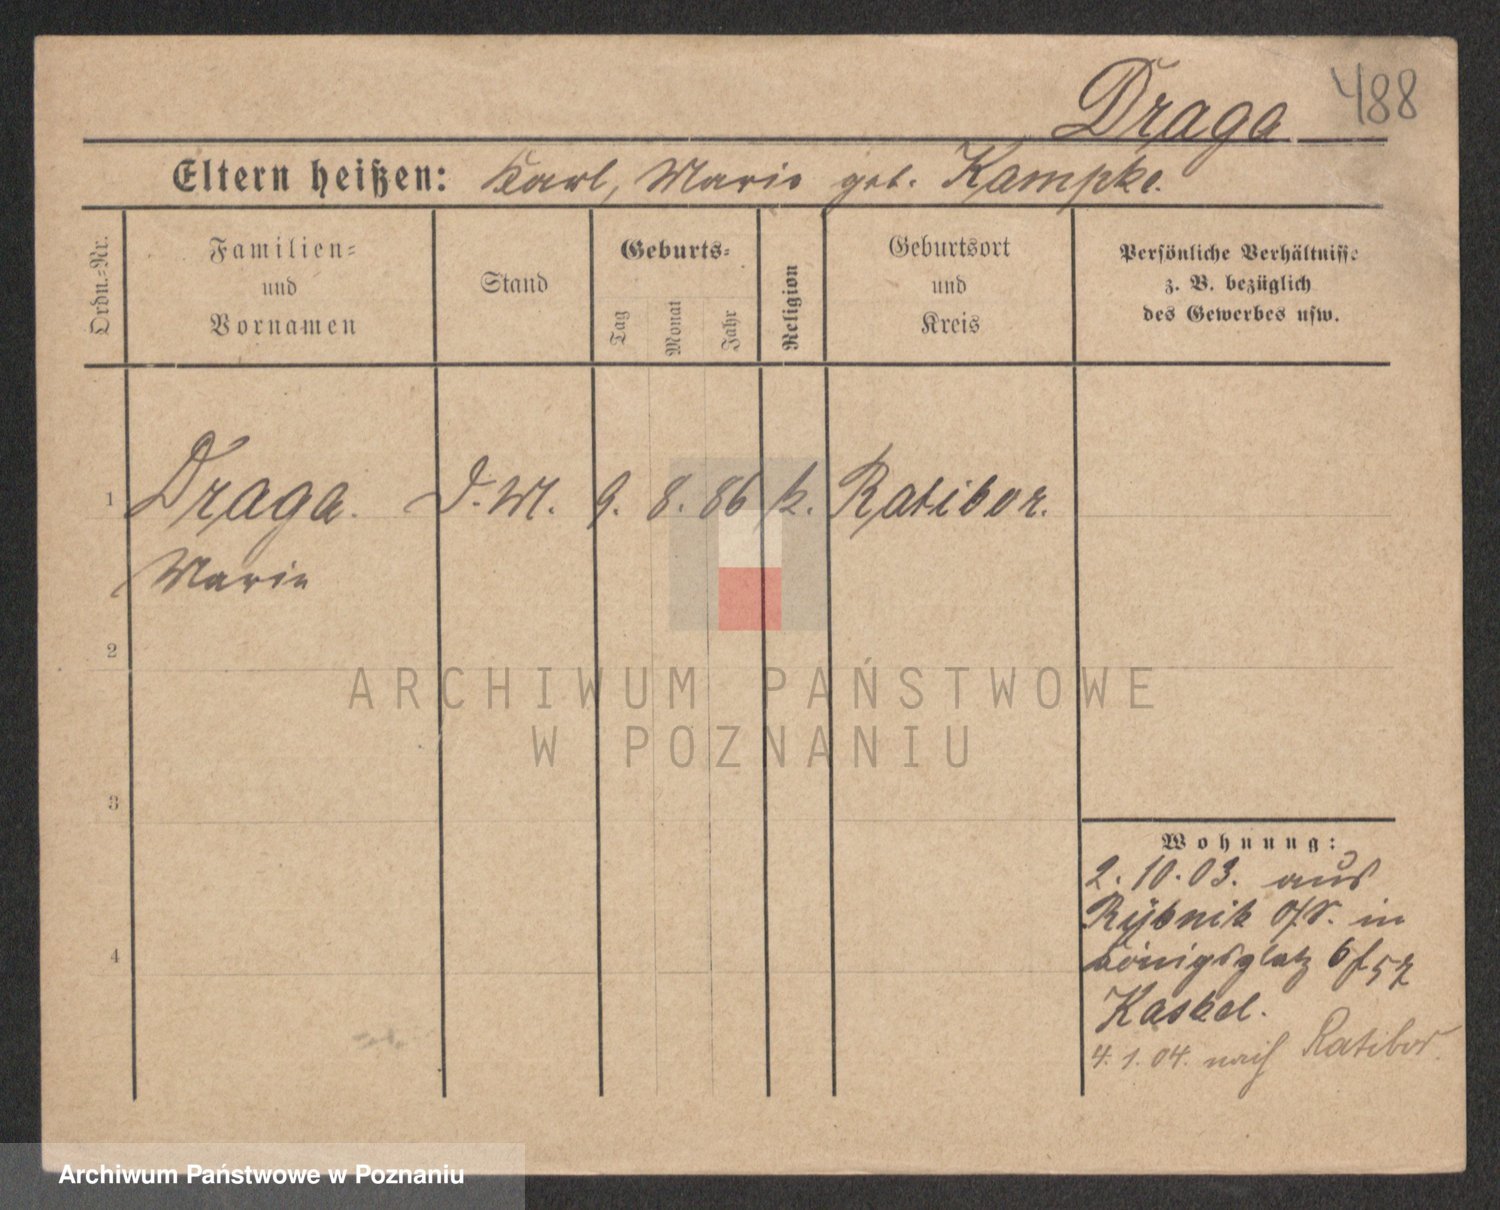 488
Draga
Eltern heißen: Karl, Marie geb. Kampke.
Ordn.=Nr.
Familien=
und
Vornamen
Stand
Geburts=
Tag
Monat
Jahr
Religion
Geburtsort
und
Kreis
Persönliche Verhältnisse
z. B. bezüglich
des Gewerbes usw.
1 Draga. D. M. 9. 8. 86 k. Ratibor.
Marie
2
3
4
Wohnung:
2.10.03. aus
Rybnik O/S. in
Königsplatz 6
Kaskel.
4.1.04. nach Ratibor.
ARCHIWUM PAŃSTWOWE
W POZNANIU
Archiwum Państwowe w Poznaniu